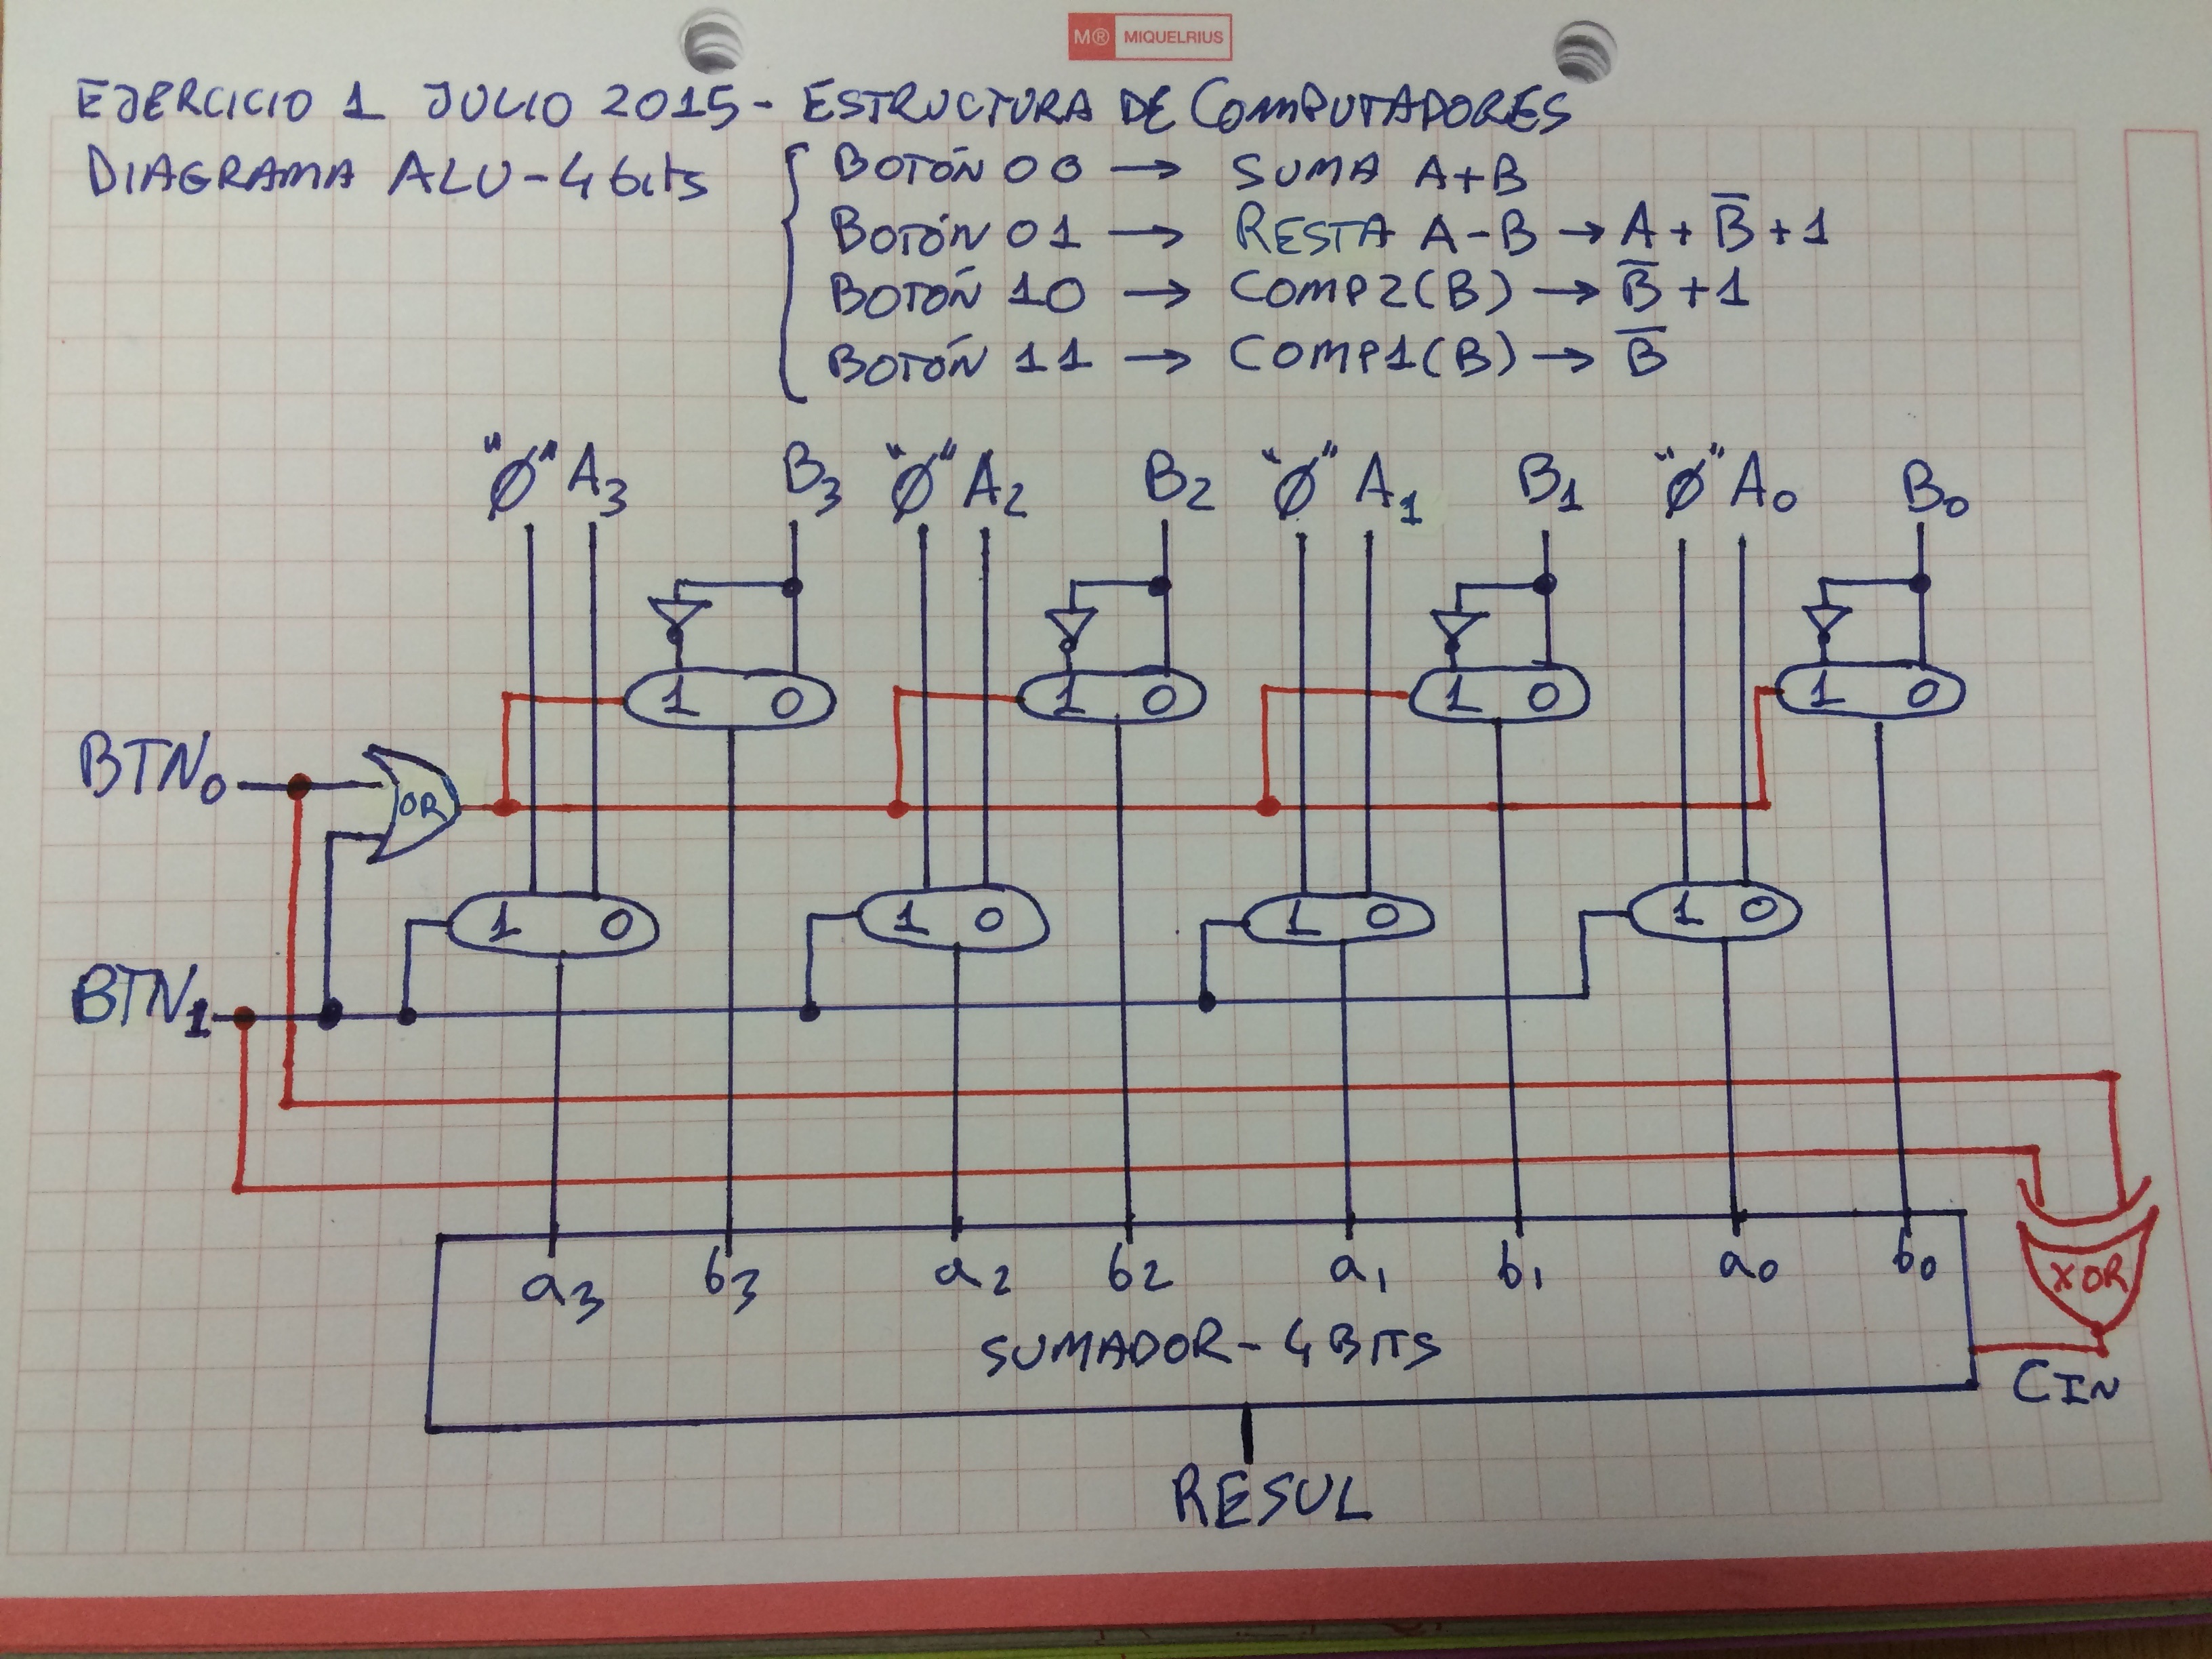 M® MIQUELRIUS
EJERCICIO 1 JULIO 2015 - ESTRUCTURA DE COMPUTADORES
DIAGRAMA ALU - 4 bits
BOTÓN 00 → SUMA A+B
BOTÓN 01 → RESTA A-B → A + B̅ + 1
BOTÓN 10 → COMP2(B) → B̅ + 1
BOTÓN 11 → COMP1(B) → B̅
"Ø" A3 B3 "Ø" A2 B2 "Ø" A1 B1 "Ø" A0 B0
1 0 1 0 1 0 1 0
BTN0 OR
1 0 1 0 1 0 1 0
BTN1
a3 b3 a2 b2 a1 b1 a0 b0 XOR
SUMADOR - 4 BITS
CIN
RESUL